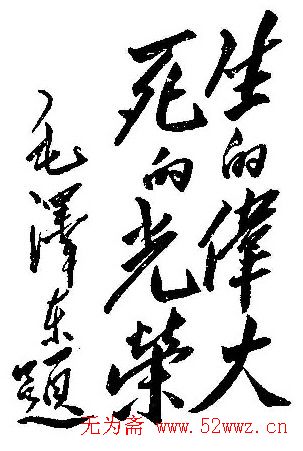 生的偉大
死的光榮
毛澤东题
无为斋 www.52wwz.cn